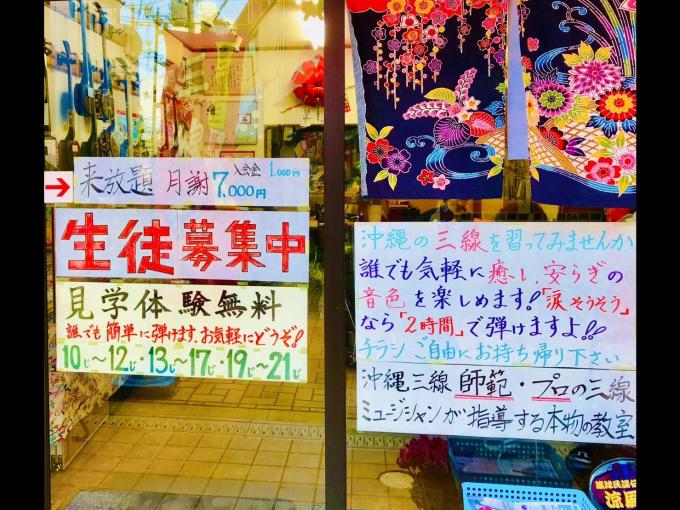 来放題 月謝 7,000円 入会金 1,000円
生徒募集中
見学体験無料
誰でも簡単に弾けます。お気軽にどうぞ!
10じ〜12じ・13じ〜17じ・19じ〜21じ
沖縄の三線を習ってみませんか
誰でも気軽に癒し、安らぎの
音色を楽しめます!「涙そうそう」
なら「2時間」で弾けますよ!!
チラシご自由にお持ち帰り下さい
沖縄三線師範・プロの三線
ミュージシャンが指導する本物の教室
琉球民謡
涼風